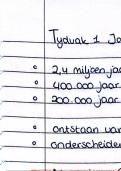 Tijdvak 1 Ja
2,4 miljoen jaa
400.000 jaar
200.000 jaar
ontstaan van
onderscheiden